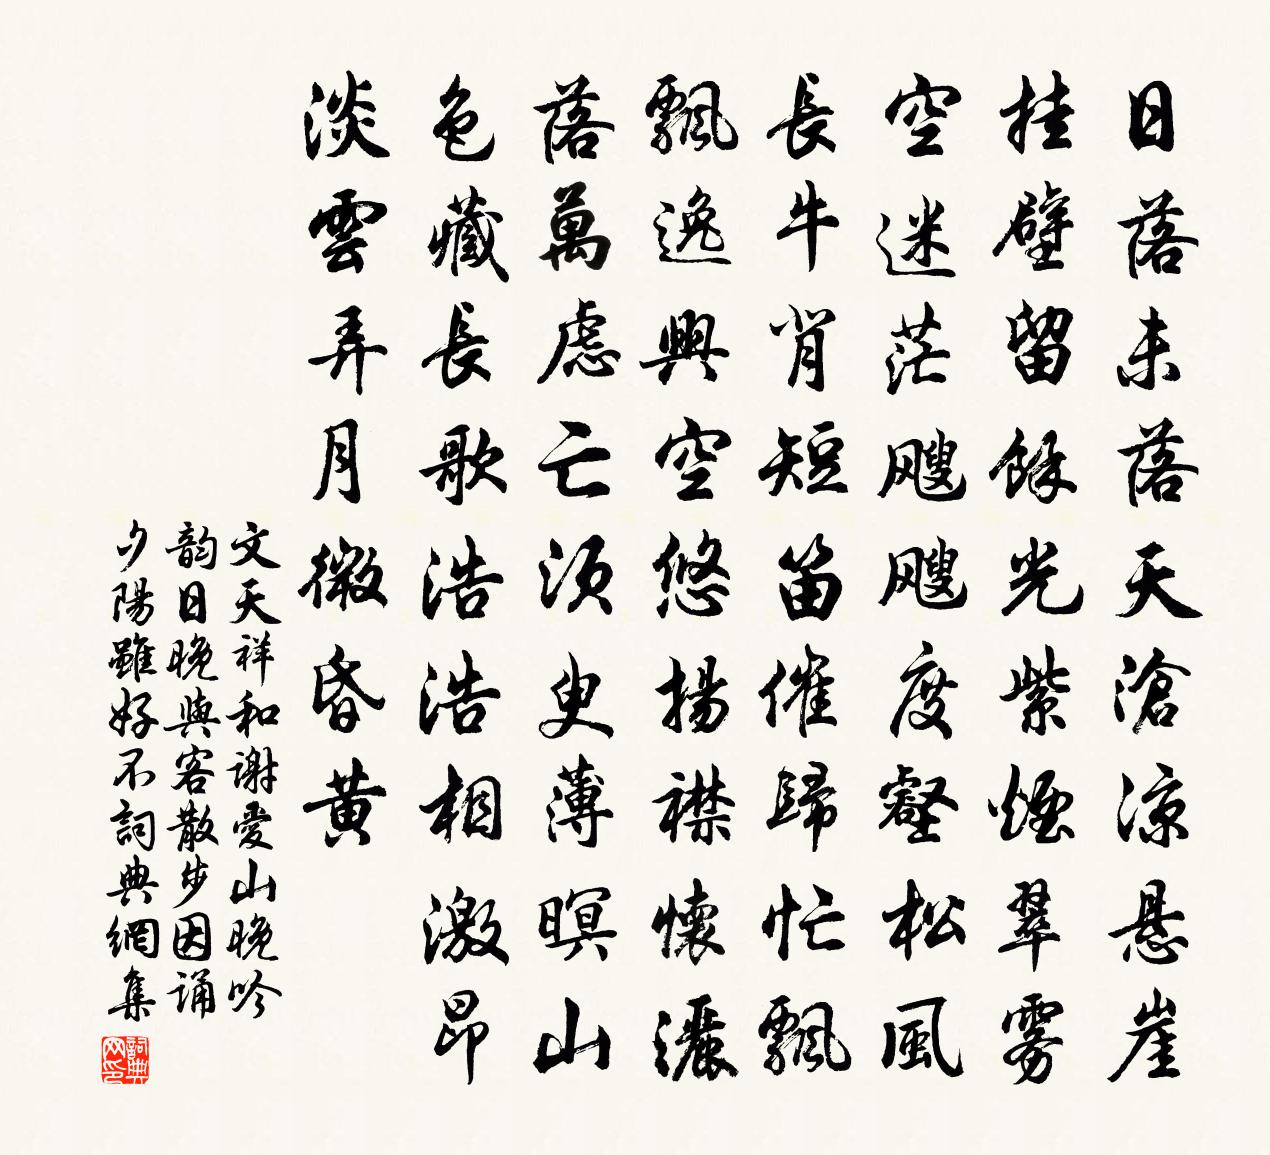 日落未落天滄涼懸崖
挂壁留餘光紫煙翠雾
空迷茫飕飕度壑松風
長牛背短笛催歸忙飄
飄逸興空悠揚襟懷灑
落萬慮亡須臾薄暝山
色藏長歌浩浩相激昂
淡雲弄月微昏黃
文天祥和謝愛山晚吟
韵日晚與客散步因誦
夕陽雖好不詞典網集
詞典网印